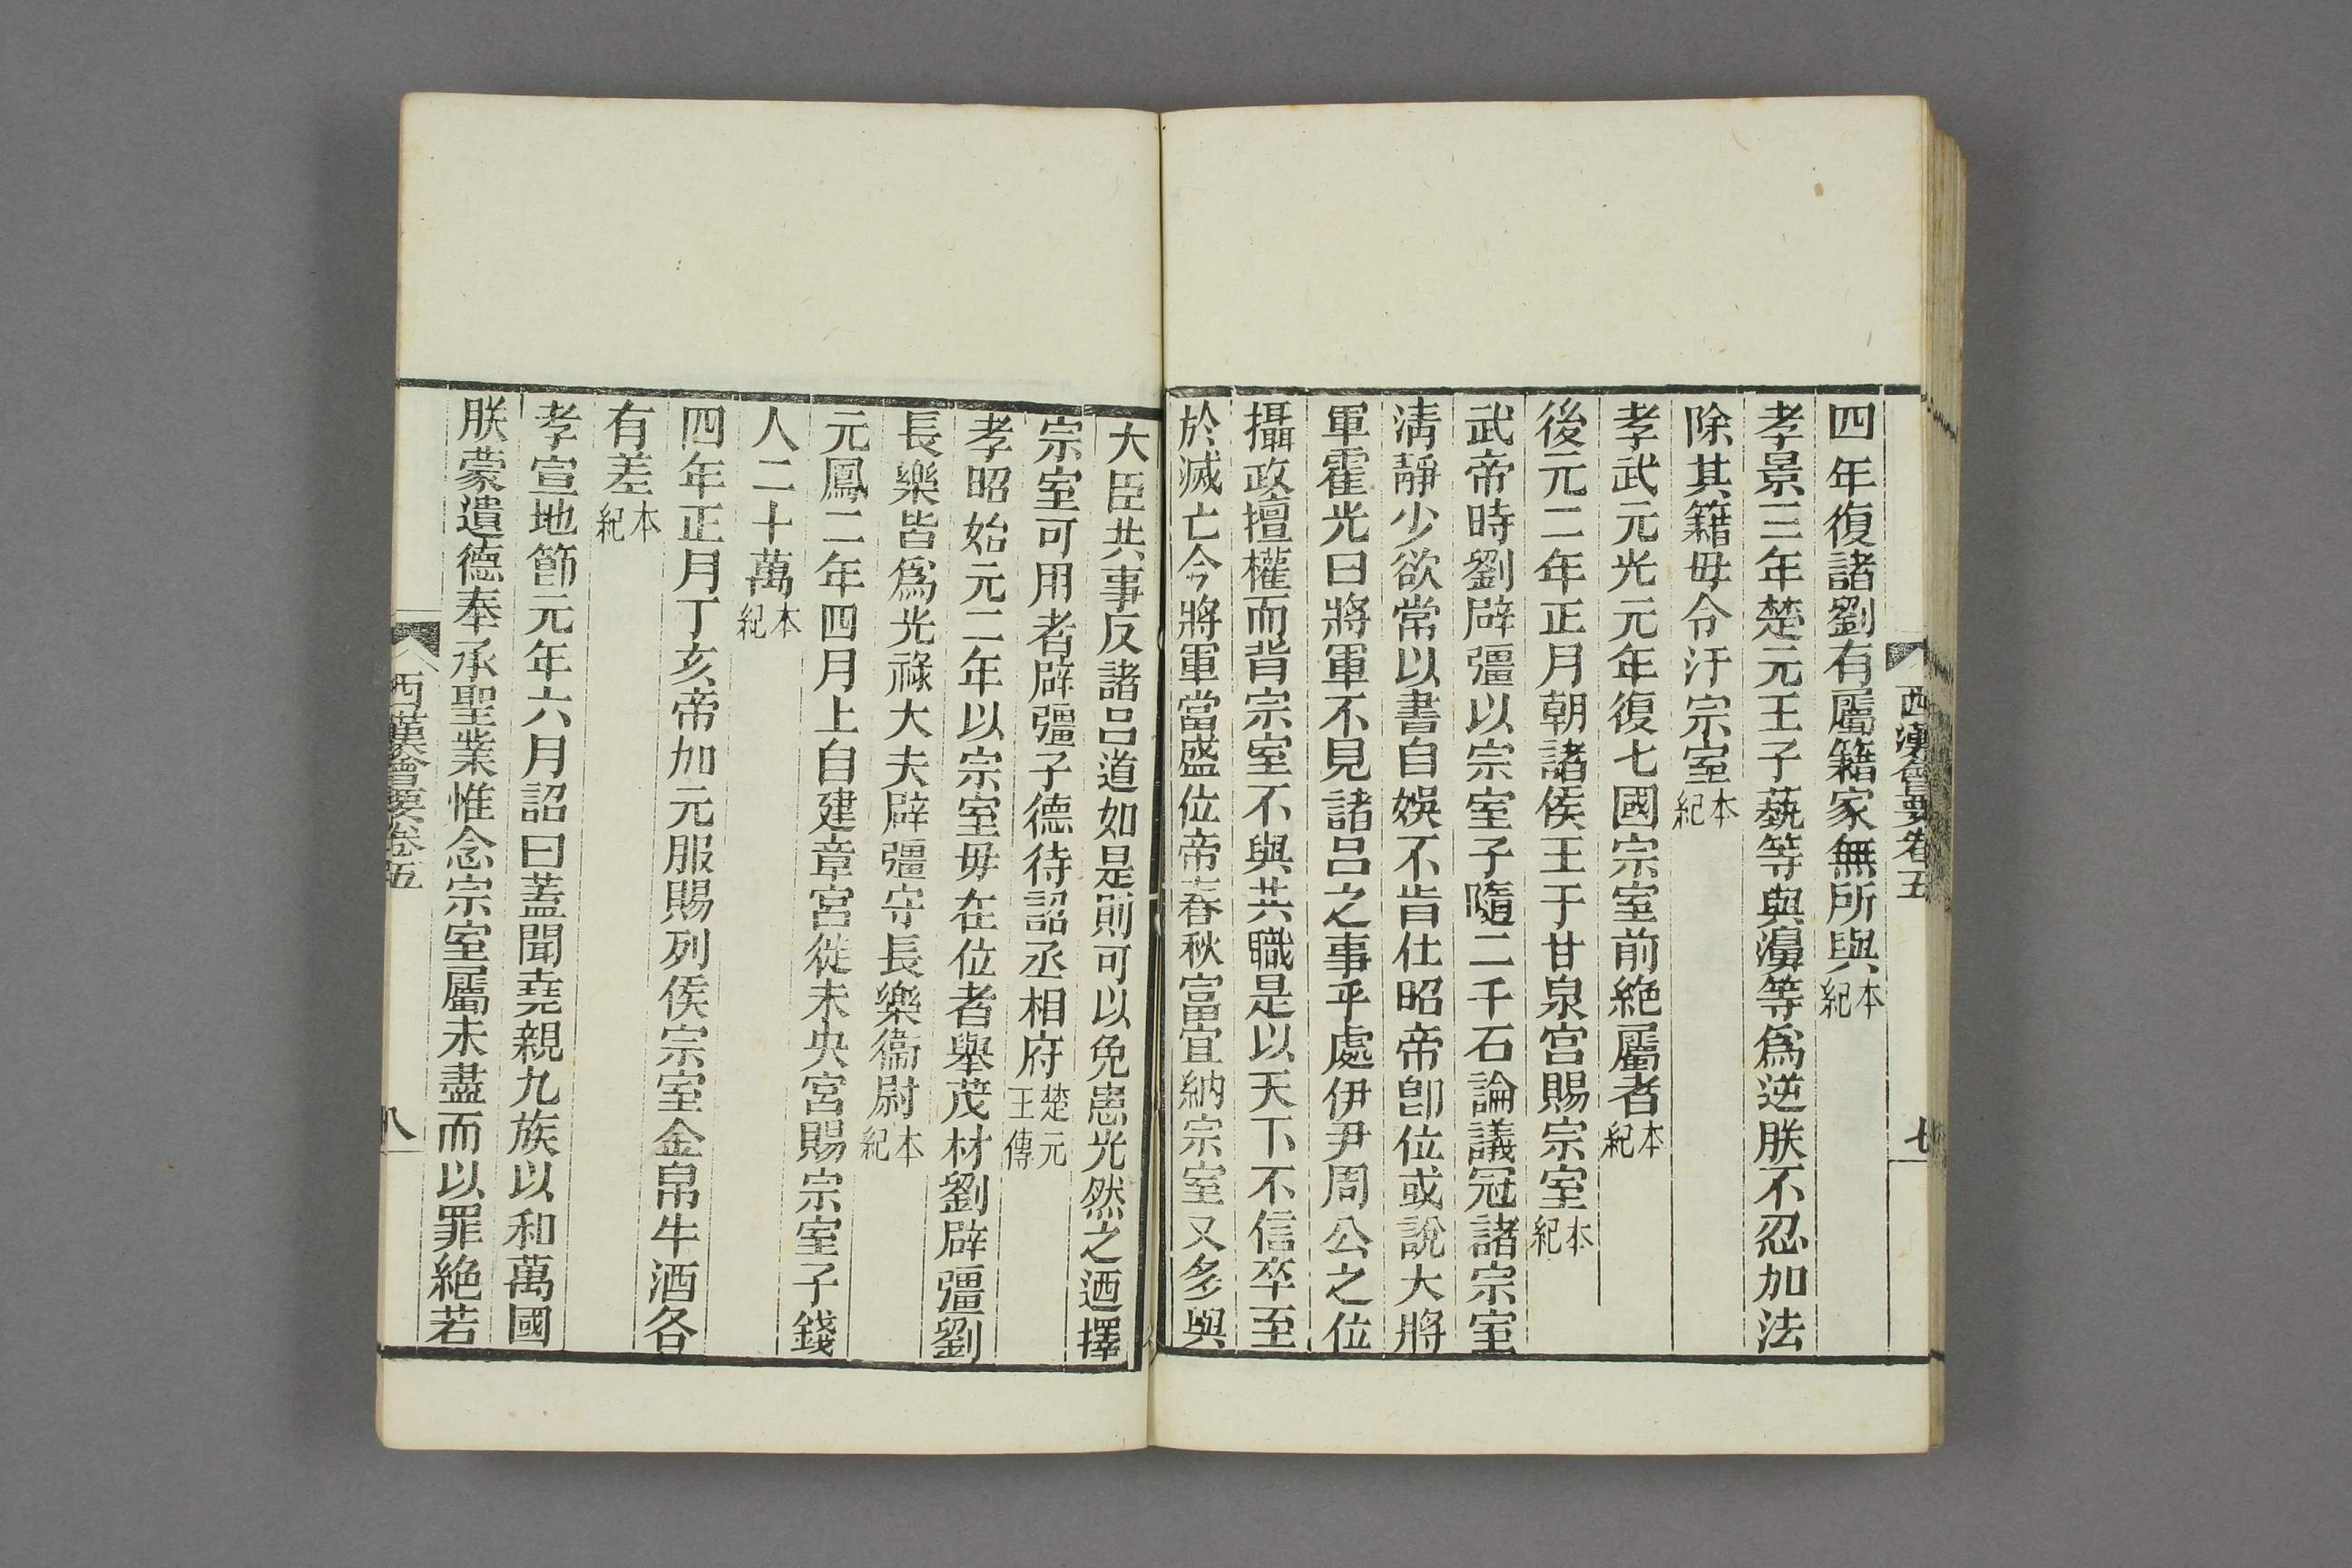 西漢會要卷五
七
四年復諸劉有屬籍家無所與本紀
孝景三年楚元王子蓺等與濞等爲逆朕不忍加法
除其籍毋令汙宗室本紀
孝武元光元年復七國宗室前絶屬者本紀
後元二年正月朝諸侯王于甘泉宮賜宗室本紀
武帝時劉辟彊以宗室子隨二千石論議冠諸宗室
淸靜少欲常以書自娛不肯仕昭帝卽位或說大將
軍霍光曰將軍不見諸呂之事乎處伊尹周公之位
攝政擅權而背宗室不與共職是以天下不信卒至
於滅亡今將軍當盛位帝春秋富宜納宗室又多與
大臣共事反諸呂道如是則可以免患光然之迺擇
宗室可用者辟彊子德待詔丞相府楚元王傳
孝昭始元二年以宗室毋在位者舉茂材劉辟彊劉
長樂皆爲光祿大夫辟彊守長樂衞尉本紀
元鳳二年四月上自建章宮徙未央宮賜宗室子錢
人二十萬本紀
四年正月丁亥帝加元服賜列侯宗室金帛牛酒各
有差本紀
孝宣地節元年六月詔曰蓋聞堯親九族以和萬國
朕蒙遺德奉承聖業惟念宗室屬未盡而以罪絶若
西漢會要卷五
八